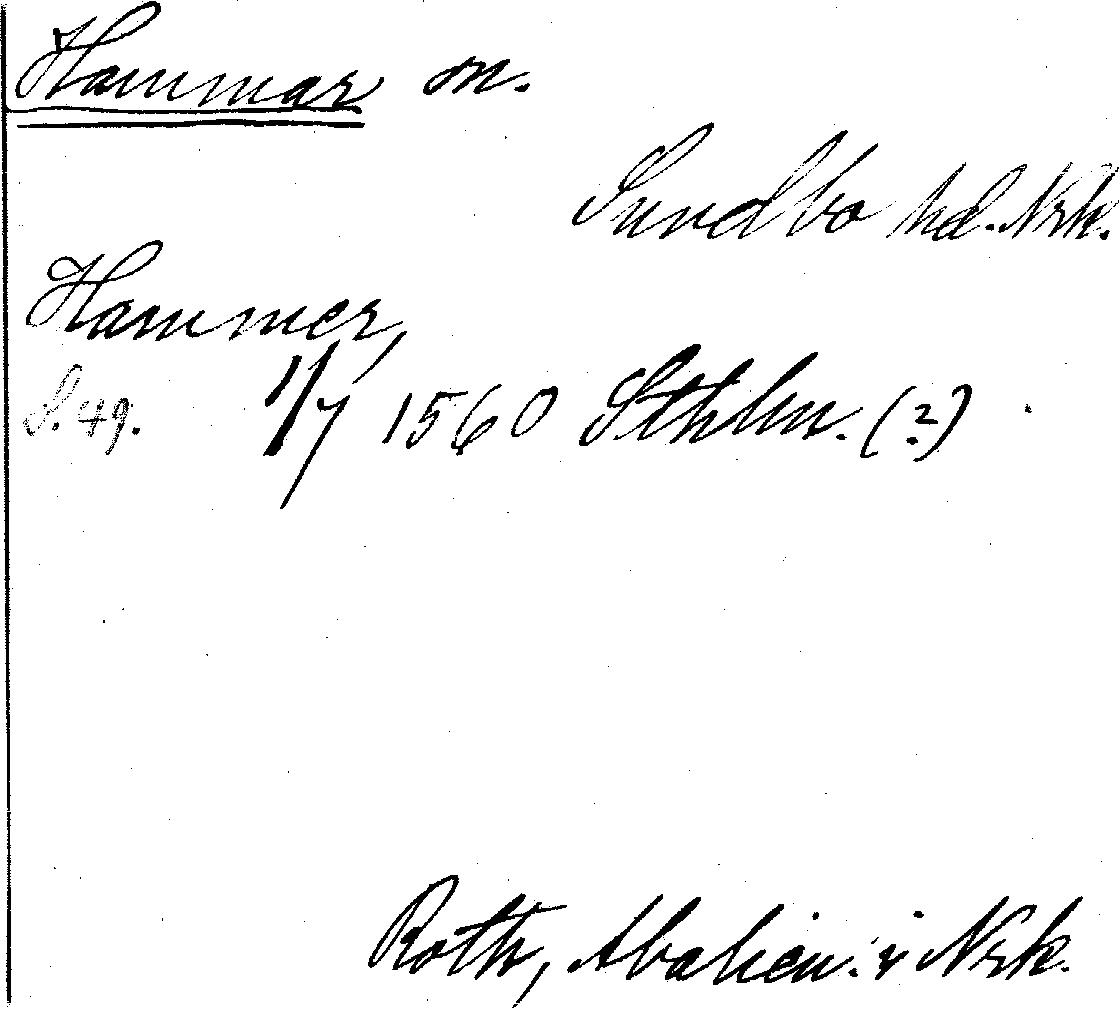 Hammar sn.
Sundbo hd. Nrk.
Hammer,
S. 49. 1/7 1560 Sthlm. (?)
Roth, i Nrk.